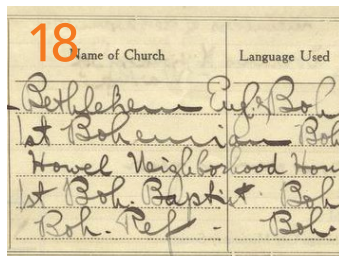 18
Name of Church Language Used
Bethlehem Eng. & Boh
1st Bohemian Boh
Howel Neighborhood Hou
1st Boh. Baptist. Boh
Boh. Ref. Boh.